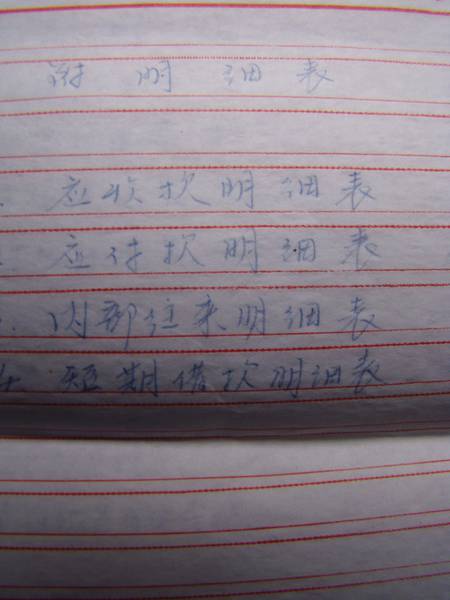 附明细表
应收款明细表
应付款明细表
内部往来明细表
4. 短期借款明细表